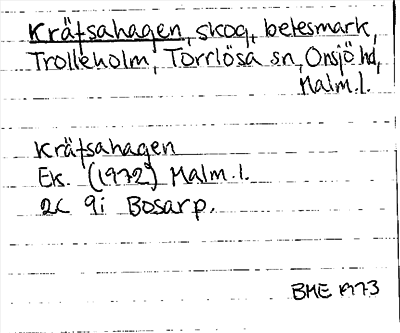 Kräfsahagen, skog, betesmark,
Trolleholm, Torrlösa sn, Onsjö hd,
Malm.l.
Kräfsahagen
Ek. (1972) Malm.l.
2C 9i Bosarp.
BME 1973